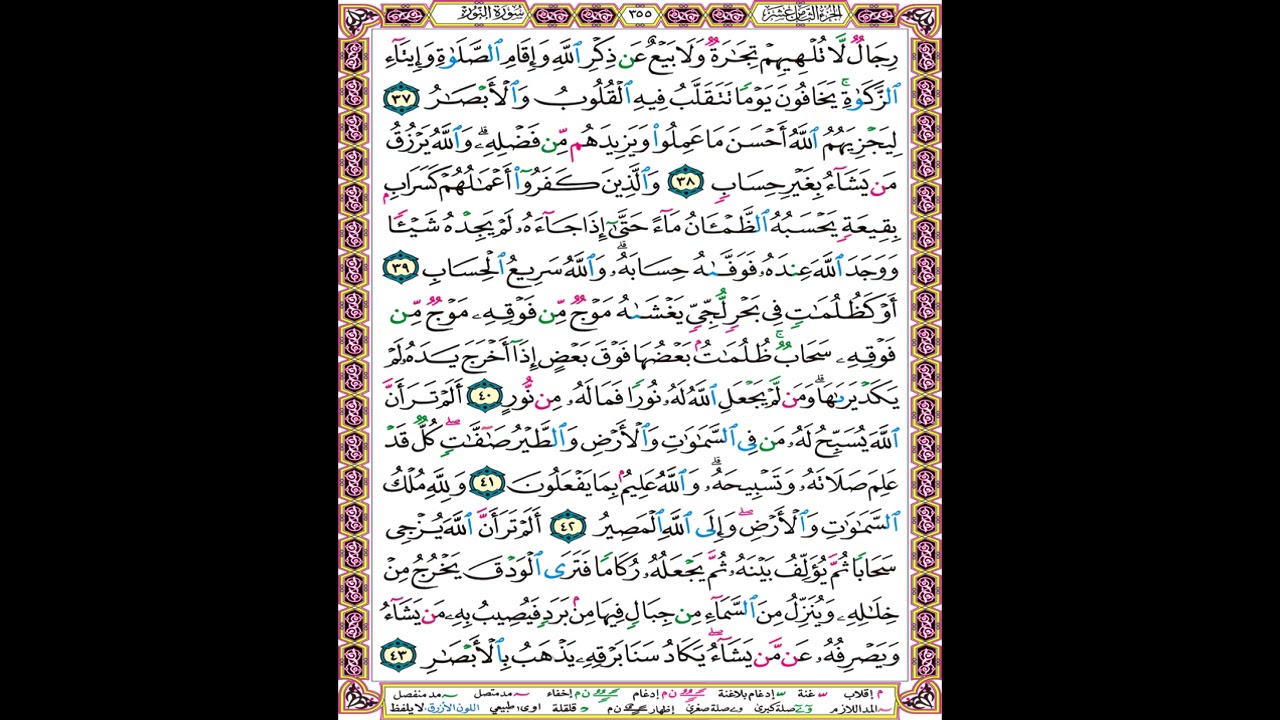 الجزء الثامن عشر ٣٥٥ سورة النور
رِجَالٌ لَّا تُلْهِيهِمْ تِجَٰرَةٌ وَلَا بَيْعٌ عَن ذِكْرِ ٱللَّهِ وَإِقَامِ ٱلصَّلَوٰةِ وَإِيتَآءِ
ٱلزَّكَوٰةِ ۙ يَخَافُونَ يَوْمًا تَتَقَلَّبُ فِيهِ ٱلْقُلُوبُ وَٱلْأَبْصَٰرُ ٣٧
لِيَجْزِيَهُمُ ٱللَّهُ أَحْسَنَ مَا عَمِلُوا۟ وَيَزِيدَهُم مِّن فَضْلِهِۦ ۗ وَٱللَّهُ يَرْزُقُ
مَن يَشَآءُ بِغَيْرِ حِسَابٍ ٣٨ وَٱلَّذِينَ كَفَرُوٓا۟ أَعْمَٰلُهُمْ كَسَرَابٍۭ
بِقِيعَةٍ يَحْسَبُهُ ٱلظَّمْـَٔانُ مَآءً حَتَّىٰٓ إِذَا جَآءَهُۥ لَمْ يَجِدْهُ شَيْـًٔا
وَوَجَدَ ٱللَّهَ عِندَهُۥ فَوَفَّىٰهُ حِسَابَهُۥ ۗ وَٱللَّهُ سَرِيعُ ٱلْحِسَابِ ٣٩
أَوْ كَظُلُمَٰتٍ فِى بَحْرٍ لُّجِّىٍّ يَغْشَىٰهُ مَوْجٌ مِّن فَوْقِهِۦ مَوْجٌ مِّن
فَوْقِهِۦ سَحَابٌ ۚ ظُلُمَٰتٌۢ بَعْضُهَا فَوْقَ بَعْضٍ إِذَآ أَخْرَجَ يَدَهُۥ لَمْ
يَكَدْ يَرَىٰهَا ۗ وَمَن لَّمْ يَجْعَلِ ٱللَّهُ لَهُۥ نُورًا فَمَا لَهُۥ مِن نُّورٍ ٤٠ أَلَمْ تَرَ أَنَّ
ٱللَّهَ يُسَبِّحُ لَهُۥ مَن فِى ٱلسَّمَٰوَٰتِ وَٱلْأَرْضِ وَٱلطَّيْرُ صَٰٓفَّٰتٍ ۖ كُلٌّ قَدْ
عَلِمَ صَلَاتَهُۥ وَتَسْبِيحَهُۥ ۗ وَٱللَّهُ عَلِيمٌۢ بِمَا يَفْعَلُونَ ٤١ وَلِلَّهِ مُلْكُ
ٱلسَّمَٰوَٰتِ وَٱلْأَرْضِ ۖ وَإِلَى ٱللَّهِ ٱلْمَصِيرُ ٤٢ أَلَمْ تَرَ أَنَّ ٱللَّهَ يُزْجِى
سَحَابًا ثُمَّ يُؤَلِّفُ بَيْنَهُۥ ثُمَّ يَجْعَلُهُۥ رُكَامًا فَتَرَى ٱلْوَدْقَ يَخْرُجُ مِنْ
خِلَٰلِهِۦ وَيُنَزِّلُ مِنَ ٱلسَّمَآءِ مِن جِبَالٍ فِيهَا مِنۢ بَرَدٍ فَيُصِيبُ بِهِۦ مَن يَشَآءُ
وَيَصْرِفُهُۥ عَن مَّن يَشَآءُ ۖ يَكَادُ سَنَا بَرْقِهِۦ يَذْهَبُ بِٱلْأَبْصَٰرِ ٤٣
م إقلاب غنة إدغام بلاغنة ن م إدغام ن م إخفاء مد متصل مد منفصل
المد اللازم صلة كبرى صلة صغرى إظهار ن م قلقلة اوى: طبيعي اللون الأزرق لا يلفظ